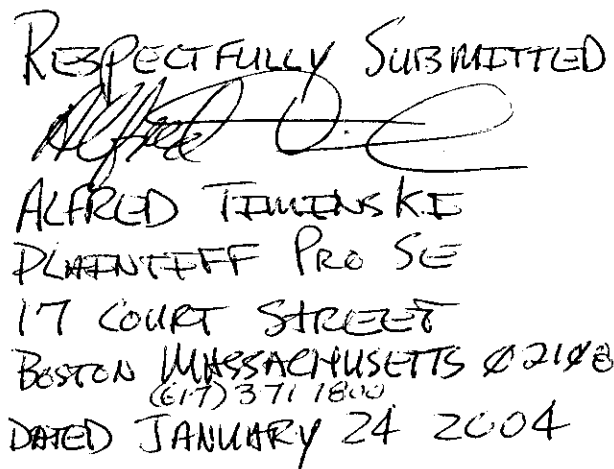 RESPECTFULLY SUBMITTED
Alfred
ALFRED TIMINSKI
PLAINTIFF PRO SE
17 COURT STREET
BOSTON MASSACHUSETTS 02108
(617) 371 1800
DATED JANUARY 24 2004